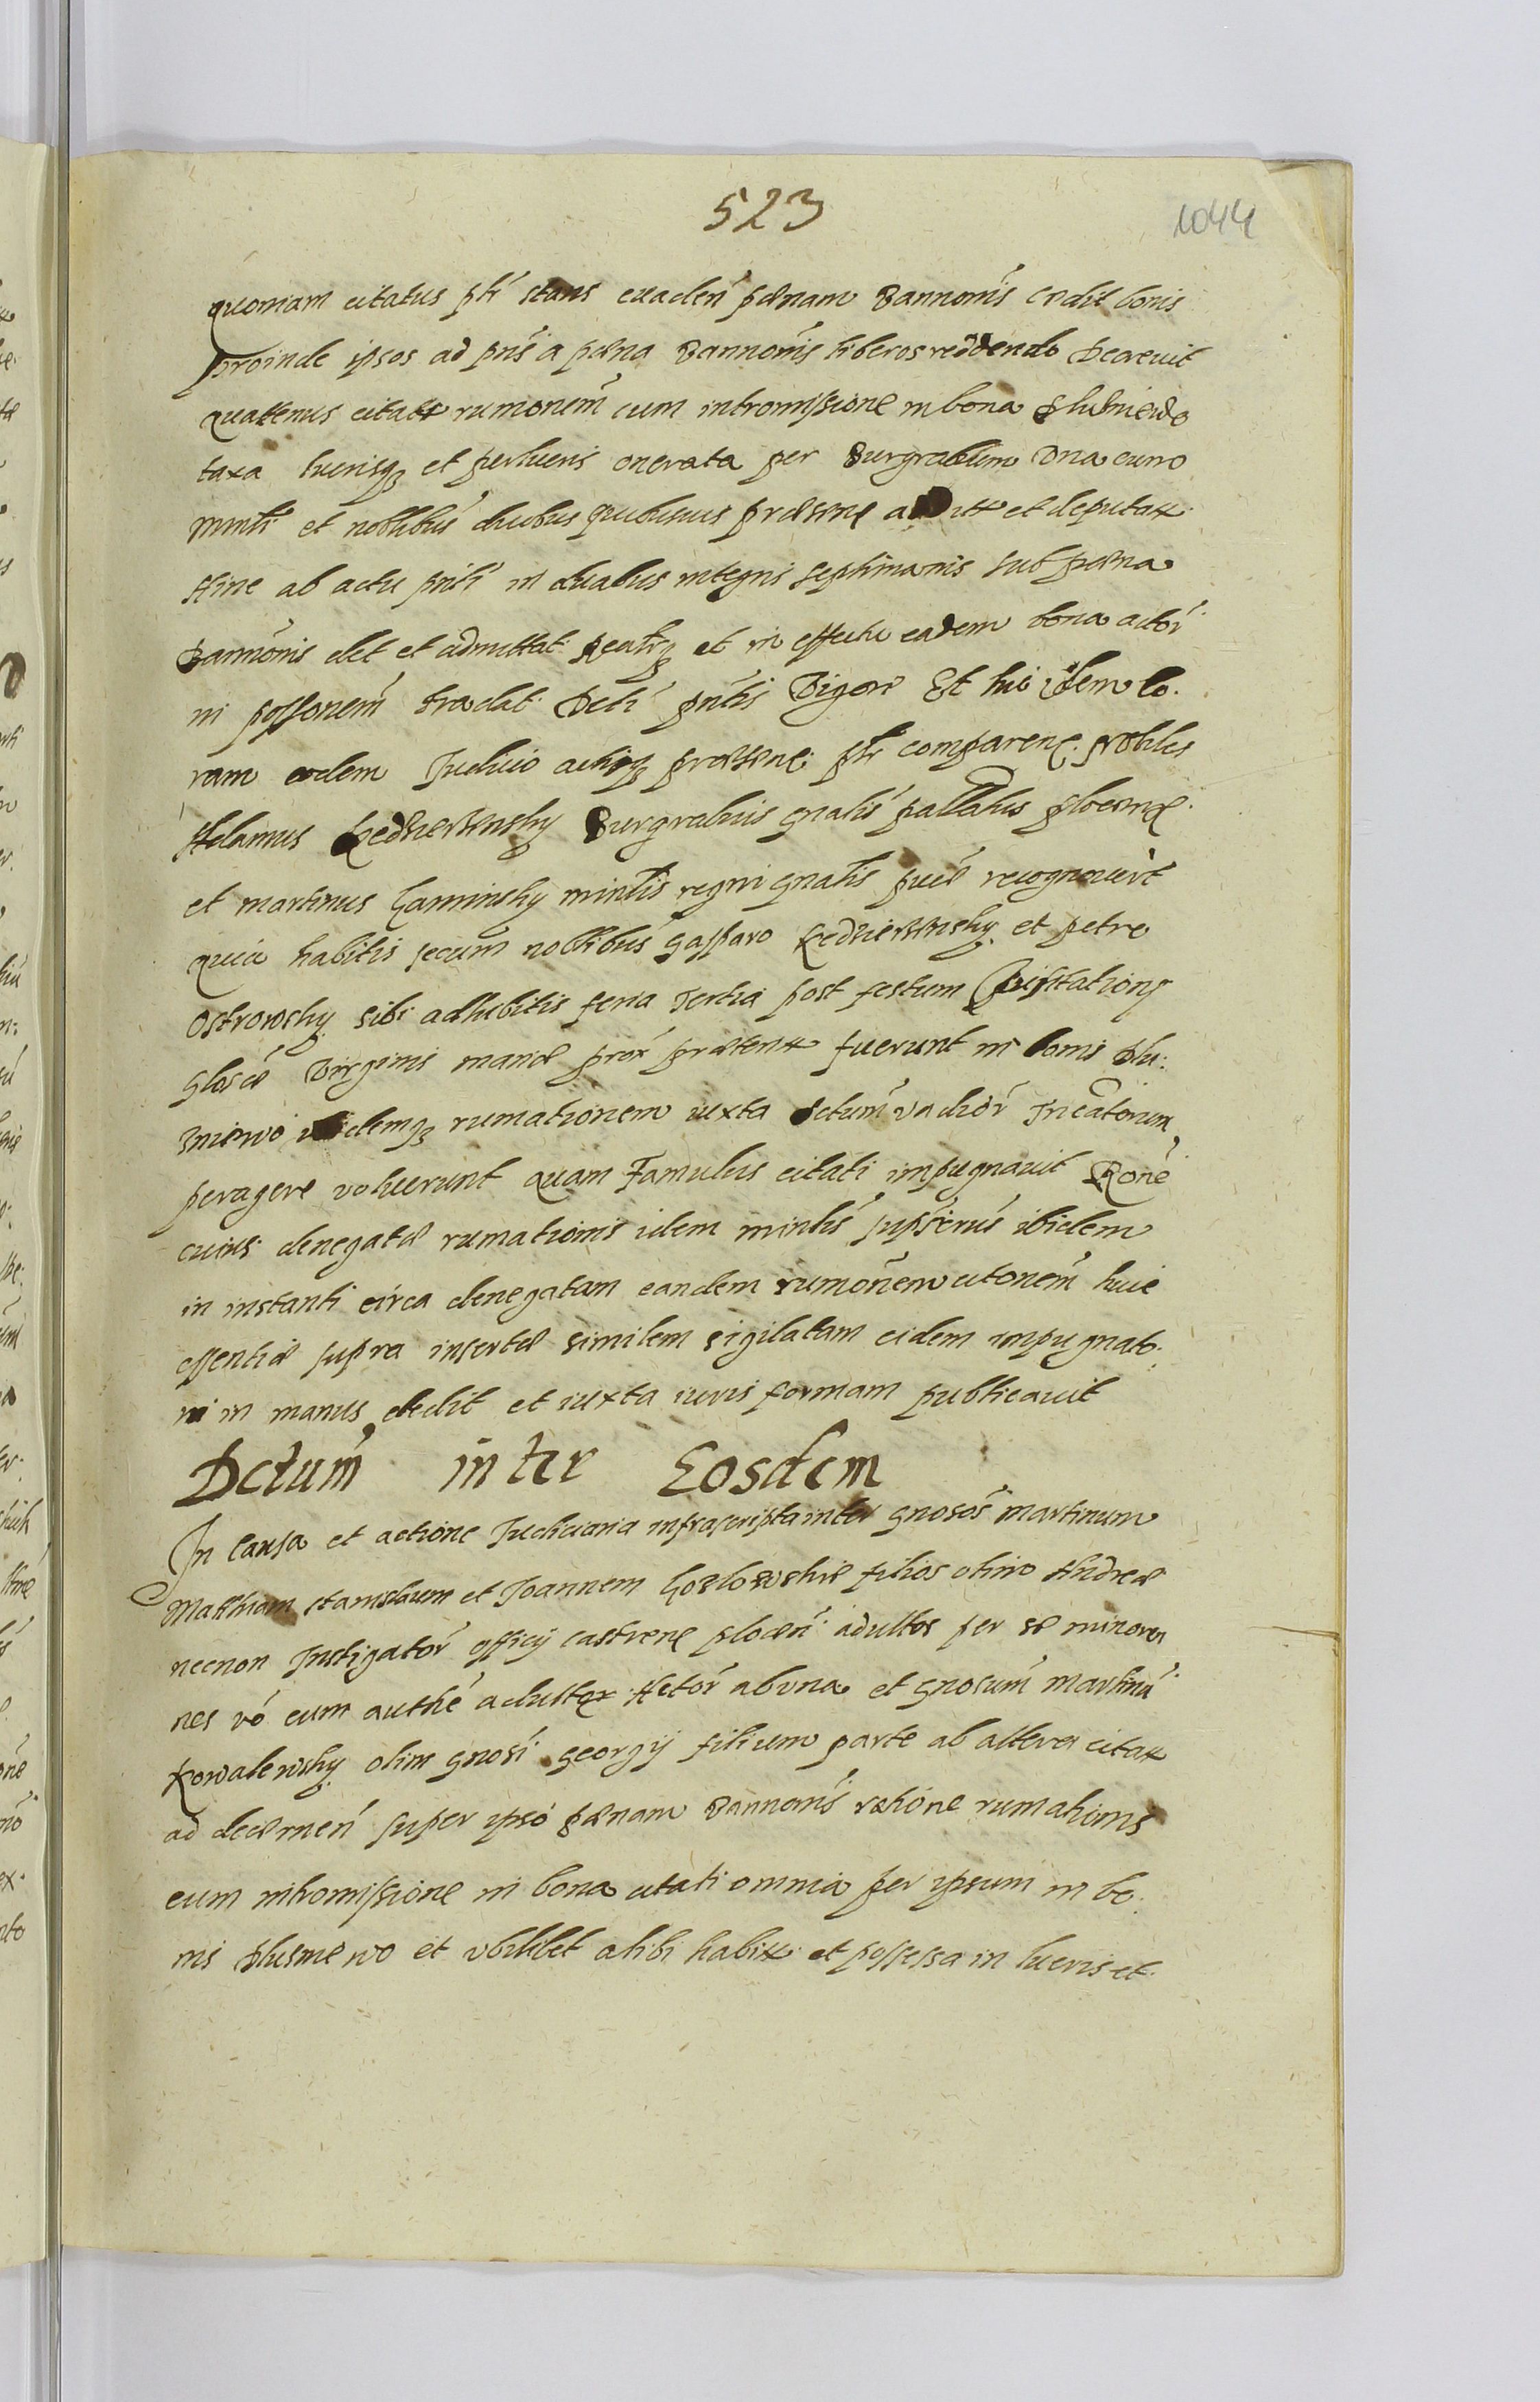 523
1044
quoniam citatus ptr stans euaden paenam Bannonis cedit bonis
proinde ipsos ad prns a paena Bannonis liberos reddendo Decreuit
quattenus citatt rumonem cum intromissione in bona Plusniewo
taxa lucrisq et perlucris onerata per Burgrabium Vna cum
mintri et nobilibus duobus quibusuis praesene additt et deputatt
Hinc ab actu pnti in duabus integris septimanis sub paena
Bannonis det et admittat et in effectu eadem bona actor
in possonem tradat Dcti pntis Vigore Et hic idem co.
ram eodem Judicio actisq praesene ptr comparene. Nobiles
Adamus Kedzierzinsky Burgrabius gnalis pallatus plocene.
et Martinus Kaminsky mintlis regni gnalis puce recognouert
quia habitis secum nobilibus Gasparo Kedzierzinsky et Petro
Ostrowsky sibi adhibitis feria tertia post festum Visitationis
Glosae Virginis Mariae prox praetertt fuerunt in bonis Plu:
sniewo ibidemq rumationem iuxta dctum vadior Incatorum
peragere voluerunt quam Famulus citati impugnauit Rone
cuius denegatae rumationis idem mintlis supscrus ibidem
in instanti circa denegatam eandem rumonem citonem huic
essentiae supra insertae similem sigilatam eidem impugnato.
ri in manus dedit et iuxta iuris formam publicauit
Dctum inter Eosdem
In causa et actione Judiciaria infrascripta inter gnosos Martinum
Mathiam Stanislaum et Joannem Kozlowskie filios olim Andreae
necnon Instigator officij castrene plocen adultos per se minoren
nes vo cum authe adultor Actor ab vna et gnosum Martinu
Kowalewsky olim gnosi Georgij filium parte ab altera citatt
ad decernen super ipso paenam Bannonis ratione rumationis
cum intromissione in bona citati omnia per ipsum in bo.
nis Plusniewo et vbilibet alibi habitt et possessa in lucris et